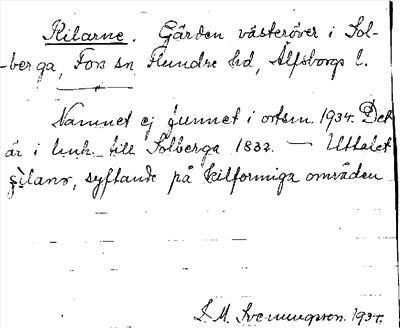 Kilarne. Gården västeröver i Sol-
-berga, Fors sn Flundre hd, Älfsborgs l.
Namnet ej funnet i ortsn. 1934. Det
är i luh till Solberga 1832. — Uttalet
silanə, syftande på kilformiga områden
S. M. Svenningson. 1934.